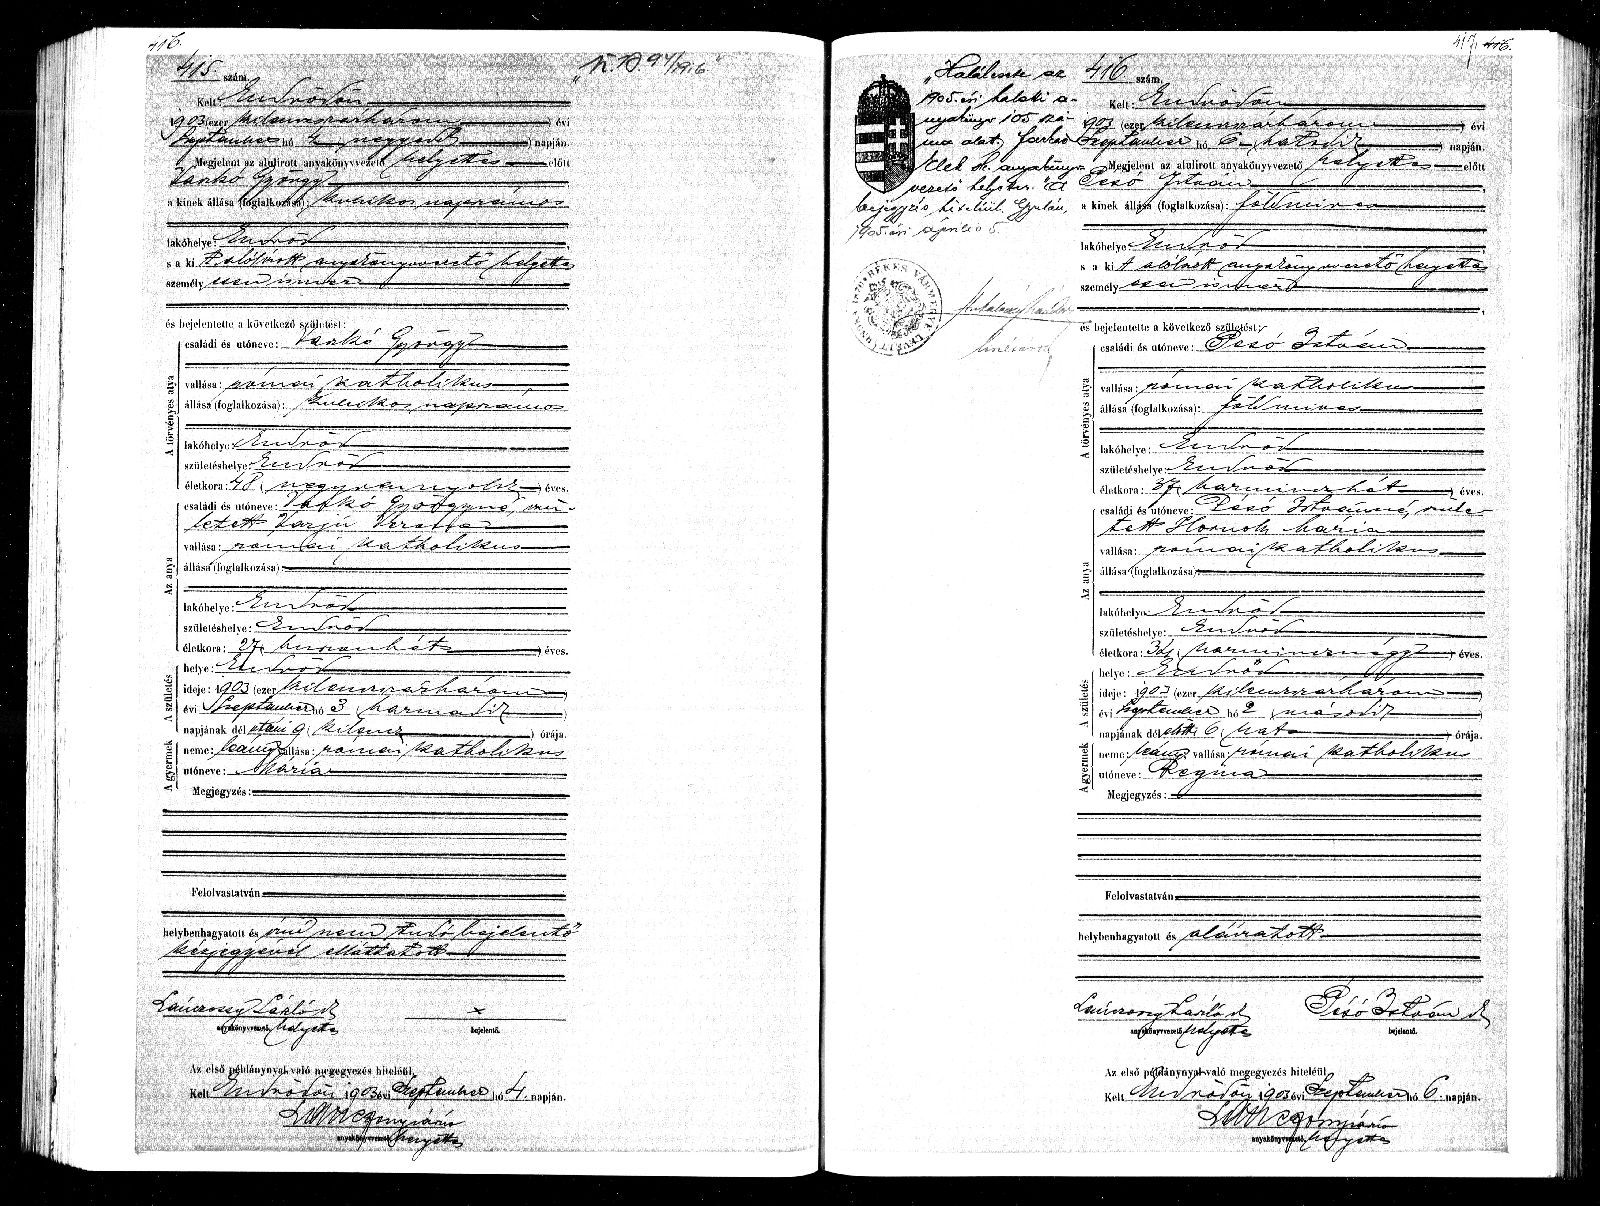 416.
415 szám.
Kelt Endrődön
1903 (ezer kilenczszázhárom) évi
Szeptember hó 4 negyedik napján.
Megjelent az alulirott anyakönyvvezető helyettes előtt
Vaskó György
a kinek állása (foglalkozása): kubikos napszámos
lakóhelye: Endrőd
s a ki Alólírott anyakönyvvezető helyettes
személyesen ismer
és bejelentette a következő születést:
A törvényes atya
családi és utóneve: Vaskó György
vallása: római katholikus
állása (foglalkozása): Kubikos napszámos
lakóhelye: Endrőd
születéshelye: Endrőd
életkora: 48 (negyvennyolcz) éves.
Az anya
családi és utóneve: Vaskó Györgyné, szü-
letett Varjú Verona
vallása: római katholikus
állása (foglalkozása):
lakóhelye: Endrőd
születéshelye: Endrőd
életkora: 27 (huszonhét) éves.
A születés
helye: Endrőd
ideje: 1903 (ezer kilenczszázhárom)
évi Szeptember hó 3 (harmadik)
napjának dél utáni 9 (kilencz) órája.
A gyermek
neme: leány vallása: római katholikus
utóneve: Mária
Megjegyzés:
Felolvastatván
helybenhagyatott és írni nem tudó bejelentő
kézjegyével elláttatott
Lánczossy László
anyakönyvvezető helyettes
x
bejelentő.
Az első példánynyal való megegyezés hiteléül.
Kelt Endrődön 1903 évi Szeptember hó 4. napján.
anyakönyvvezető helyettes
417 416.
„Halálesete az
1905. évi halotti a-
nyakönyv 105 szá-
ma alatt, Farkas
Elek sk. anyakönyv-
vezető helyttes." Ezt
bejegyzés hiteléül. Gyulán,
1905. évi április 5.
BÉKÉS VÁRMEGYE LEVÉLTÁRNOKA
416 szám.
Kelt: Endrődön
1903 (ezer kilenczszázhárom) évi
Szeptember hó 6 hatodik napján.
Megjelent az alulirott anyakönyvvezető helyettes előtt
Pésó István
a kinek állása (foglalkozása): földmives
lakóhelye: Endrőd
s a ki Alólírott anyakönyvvezető helyettes
személyesen ismer
és bejelentette a következő születést:
A törvényes atya
családi és utóneve: Pésó István
vallása: római katholikus
állása (foglalkozása): földmives
lakóhelye: Endrőd
születéshelye: Endrőd
életkora: 37 (harminczhét) éves.
Az anya
családi és utóneve: Pésó Istvánné, szüle-
tett Hornok Mária
vallása: római katholikus
állása (foglalkozása):
lakóhelye: Endrőd
születéshelye: Endrőd
életkora: 34 (harmincznégy) éves.
A születés
helye: Endrőd
ideje: 1903 (ezer kilenczszázhárom)
évi Szeptember hó 2 (második)
napjának dél előtti 6 (hat) órája.
A gyermek
neme: leány vallása: római katholikus
utóneve: Regina
Megjegyzés:
Felolvastatván
helybenhagyatott és aláíratott
Lánczossy László
anyakönyvvezető helyettes
Pésó István
bejelentő.
Az első példánynyal való megegyezés hiteléül.
Kelt Endrődön 1903 évi Szeptember hó 6. napján.
anyakönyvvezető helyettes